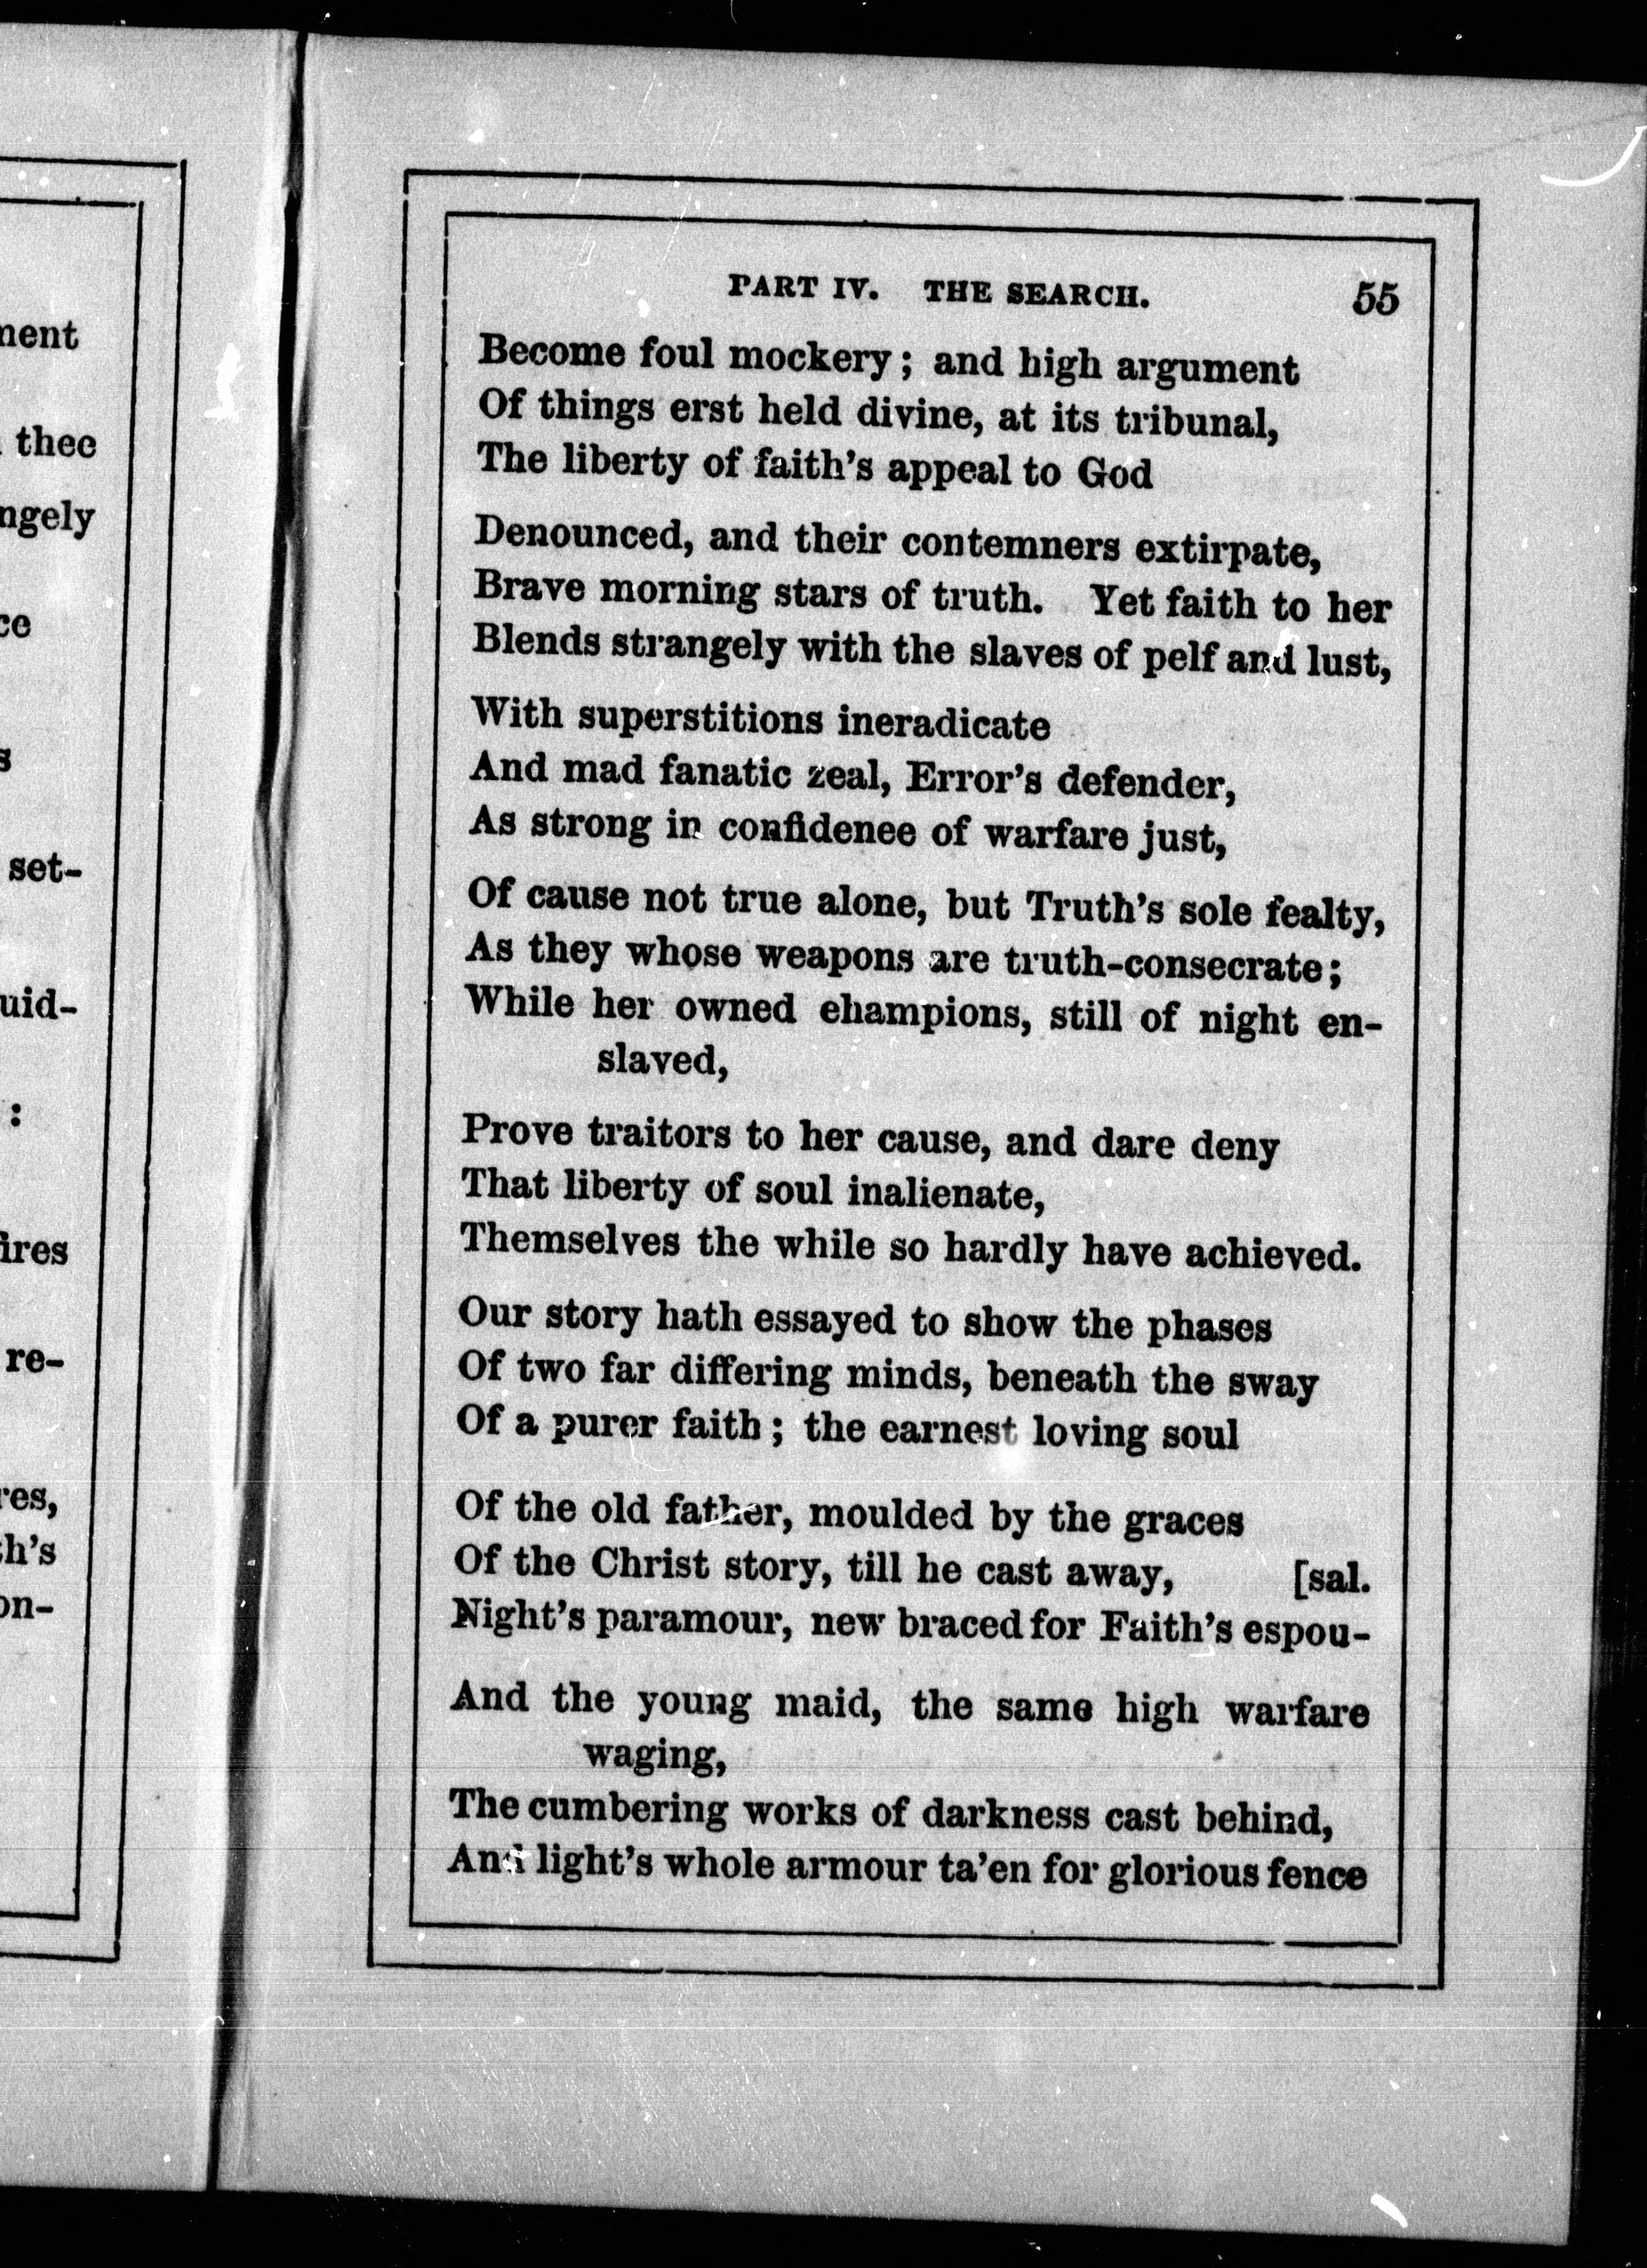 ment
thee
ngely
ce
s
set-
uid-
:
ires
re-
res,
h's
on-
PART IV. THE SEARCH. 55
Become foul mockery; and high argument
Of things erst held divine, at its tribunal,
The liberty of faith's appeal to God
Denounced, and their contemners extirpate,
Brave morning stars of truth. Yet faith to her
Blends strangely with the slaves of pelf and lust,
With superstitions ineradicate
And mad fanatic zeal, Error's defender,
As strong in confidenee of warfare just,
Of cause not true alone, but Truth's sole fealty,
As they whose weapons are truth-consecrate;
While her owned ehampions, still of night en-
slaved,
Prove traitors to her cause, and dare deny
That liberty of soul inalienate,
Themselves the while so hardly have achieved.
Our story hath essayed to show the phases
Of two far differing minds, beneath the sway
Of a purer faith; the earnest loving soul
Of the old father, moulded by the graces
Of the Christ story, till he cast away, [sal.
Night's paramour, new braced for Faith's espou-
And the young maid, the same high warfare
waging,
The cumbering works of darkness cast behind,
And light's whole armour ta'en for glorious fence